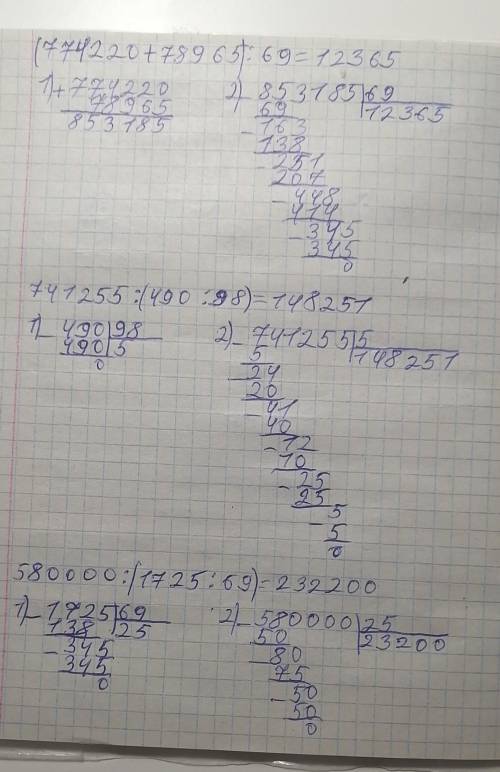 (774220+78965):69=12365
1) + 774220
78965
853185
2) - 853185 69
69 12365
- 163
138
- 251
207
- 448
414
- 345
345
0
741255:(490:98)=148251
1) - 490 98
490 5
0
2) - 741255 5
5 148251
- 24
20
- 41
40
- 12
10
- 25
25
- 5
5
0
580000:(1725:69)=232200
1) - 1725 69
138 25
- 345
345
0
2) - 580000 25
50 23200
- 80
75
- 50
50
0